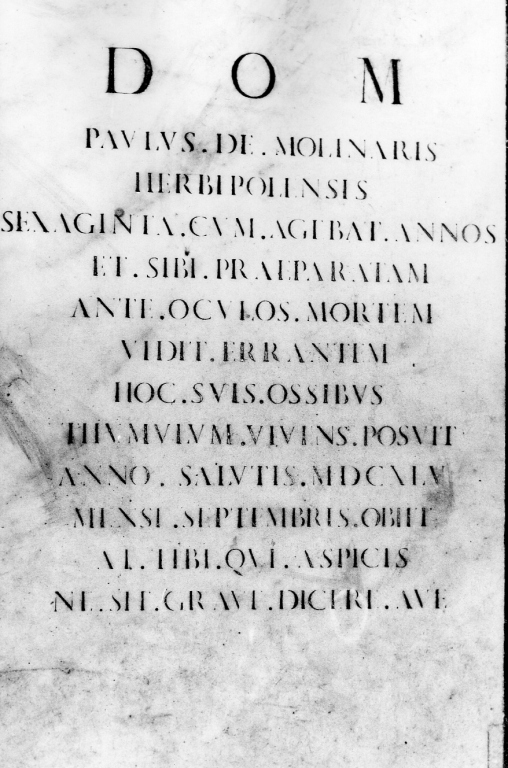 D O M
PAVLVS.DE.MOLINARIS
HERBIPOLENSIS
SEXAGINTA.CVM.AGEBAT.ANNOS
ET.SIBI.PRAEPARATAM
ANTE.OCVLOS.MORTEM
VIDIT.ERRANTEM
HOC.SVIS.OSSIBVS
THVMVLVM.VIVENS.POSVIT
ANNO.SALVTIS.MDCXLV
MENSE.SEPTEMBRIS.OBIIT
AT.TIBI.QVI.ASPICIS
NE.SIT.GRAVE.DICERE.AVE